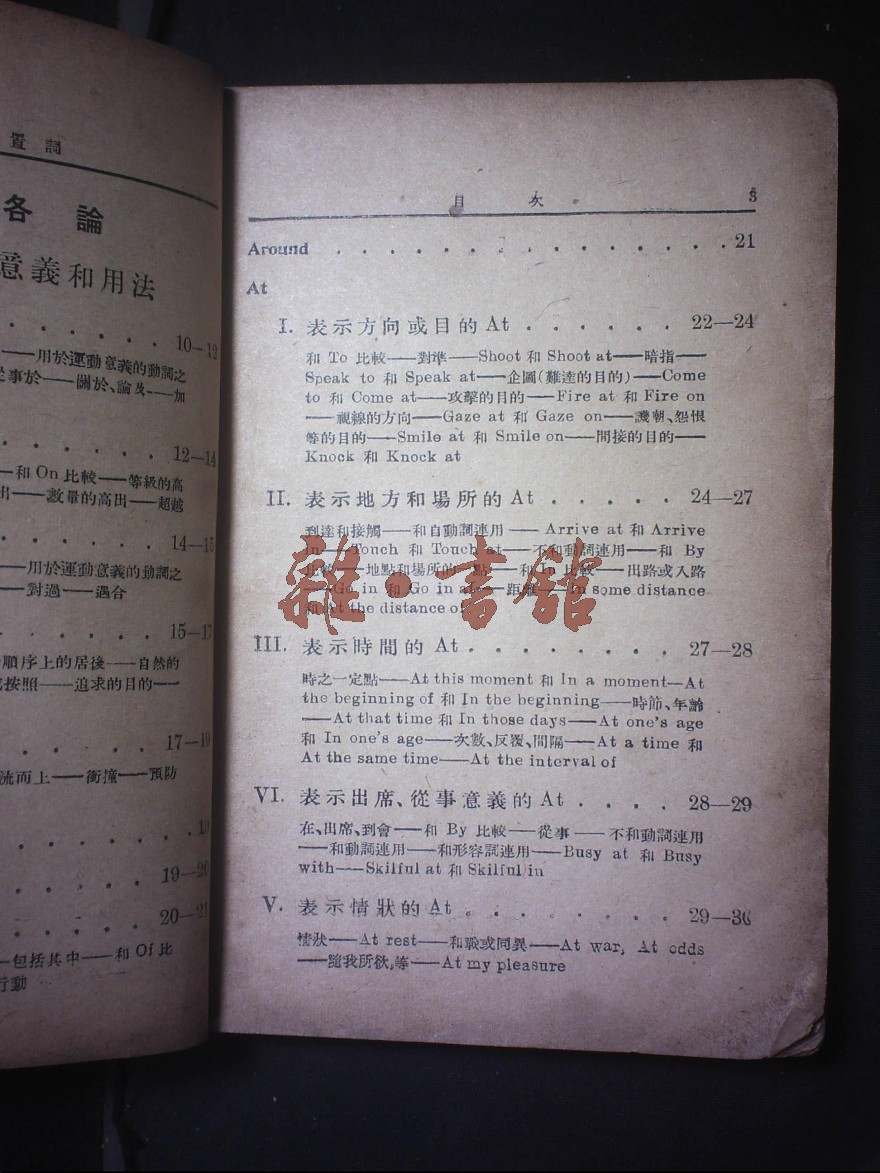 置詞
各論
意義和用法
10—12
——用於運動意義的動詞之
從事於——關於、論及——加
12—14
——和 On 比較——等級的高
出——數量的高出——超越
14—15
——用於運動意義的動詞之
——對過——遇合
15—17
順序上的居後——自然的
按照——追求的目的——
17—19
流而上——衝撞——預防
19
19—20
20—21
—包括其中——和 Of 比
行動
目次 3
Around . . . . . . . . . . . . . . . 21
At
I. 表示方向或目的 At . . . . . . 22—24
和 To 比較——對準——Shoot 和 Shoot at——暗指——
Speak to 和 Speak at——企圖(難達的目的)——Come
to 和 Come at——攻擊的目的——Fire at 和 Fire on
——視線的方向——Gaze at 和 Gaze on——譏朝、怨恨
等的目的——Smile at 和 Smile on——間接的目的——
Knock 和 Knock at
II. 表示地方和場所的 At . . . . . 24—27
到達和接觸——和自動詞連用——Arrive at 和 Arrive
in——Touch 和 Touch at——不和動詞連用——和 By
比較——地點和場所的一點——和 In 比較——出路或入路
——Go in 和 Go in at——距離——In some distance
和 At the distance of
雜·書館
III. 表示時間的 At . . . . . . . . 27—28
時之一定點——At this moment 和 In a moment—At
the beginning of 和 In the beginning——時節、年齡
——At that time 和 In those days——At one's age
和 In one's age——次數、反覆、間隔——At a time 和
At the same time——At the interval of
VI. 表示出席、從事意義的 At . . . . 28—29
在、出席、到會——和 By 比較——從事——不和動詞連用
——和動詞連用——和形容詞連用——Busy at 和 Busy
with——Skilful at 和 Skilful in
V. 表示情狀的 At . . . . . . . . 29—30
情狀——At rest——和戰或同異——At war, At odds
——隨我所欲,等——At my pleasure